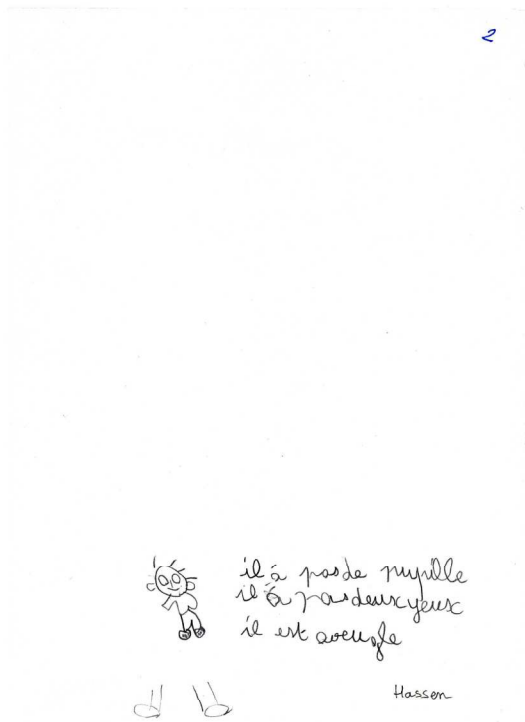 2
il à pas de pupille
il à pas deux yeux
il est aveugle
Hassen